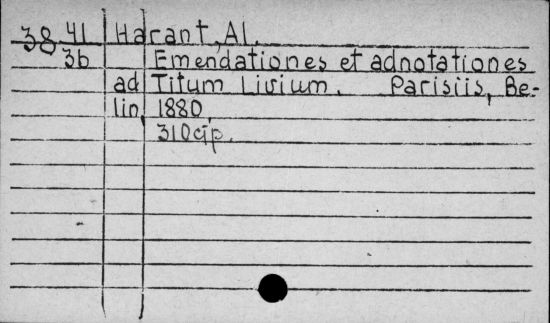 38 41 Harant, Al.
3b Emendationes et adnotationes
ad Titum Livium. Parisiis, Be-
lin, 1880.
310 стр.